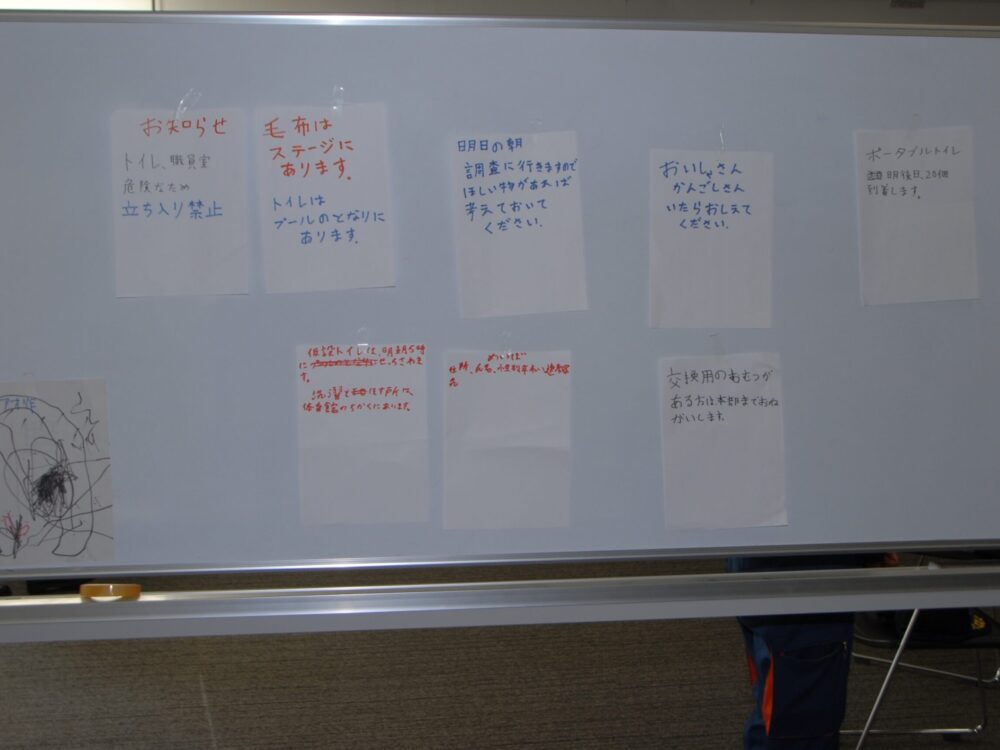 お知らせ
トイレ、職員室
危険なため
立ち入り禁止
毛布は
ステージに
あります。
トイレは
プールのとなりに
あります。
明日の朝
調査に行きますので
ほしい物があれば
考えておいて
ください.
おいしゃさん
かんごしさん
いたらおしえて
ください.
ポータブルトイレ
明後日、20個
到着します。
仮設トイレは、明朝5時
に せっちされま
す。
洗濯 干す所は、
体育館のちかくにあります。
めいぼ
住所、氏名、性別
名
交換用のおむつが
ある方は本部までおね
がいします.